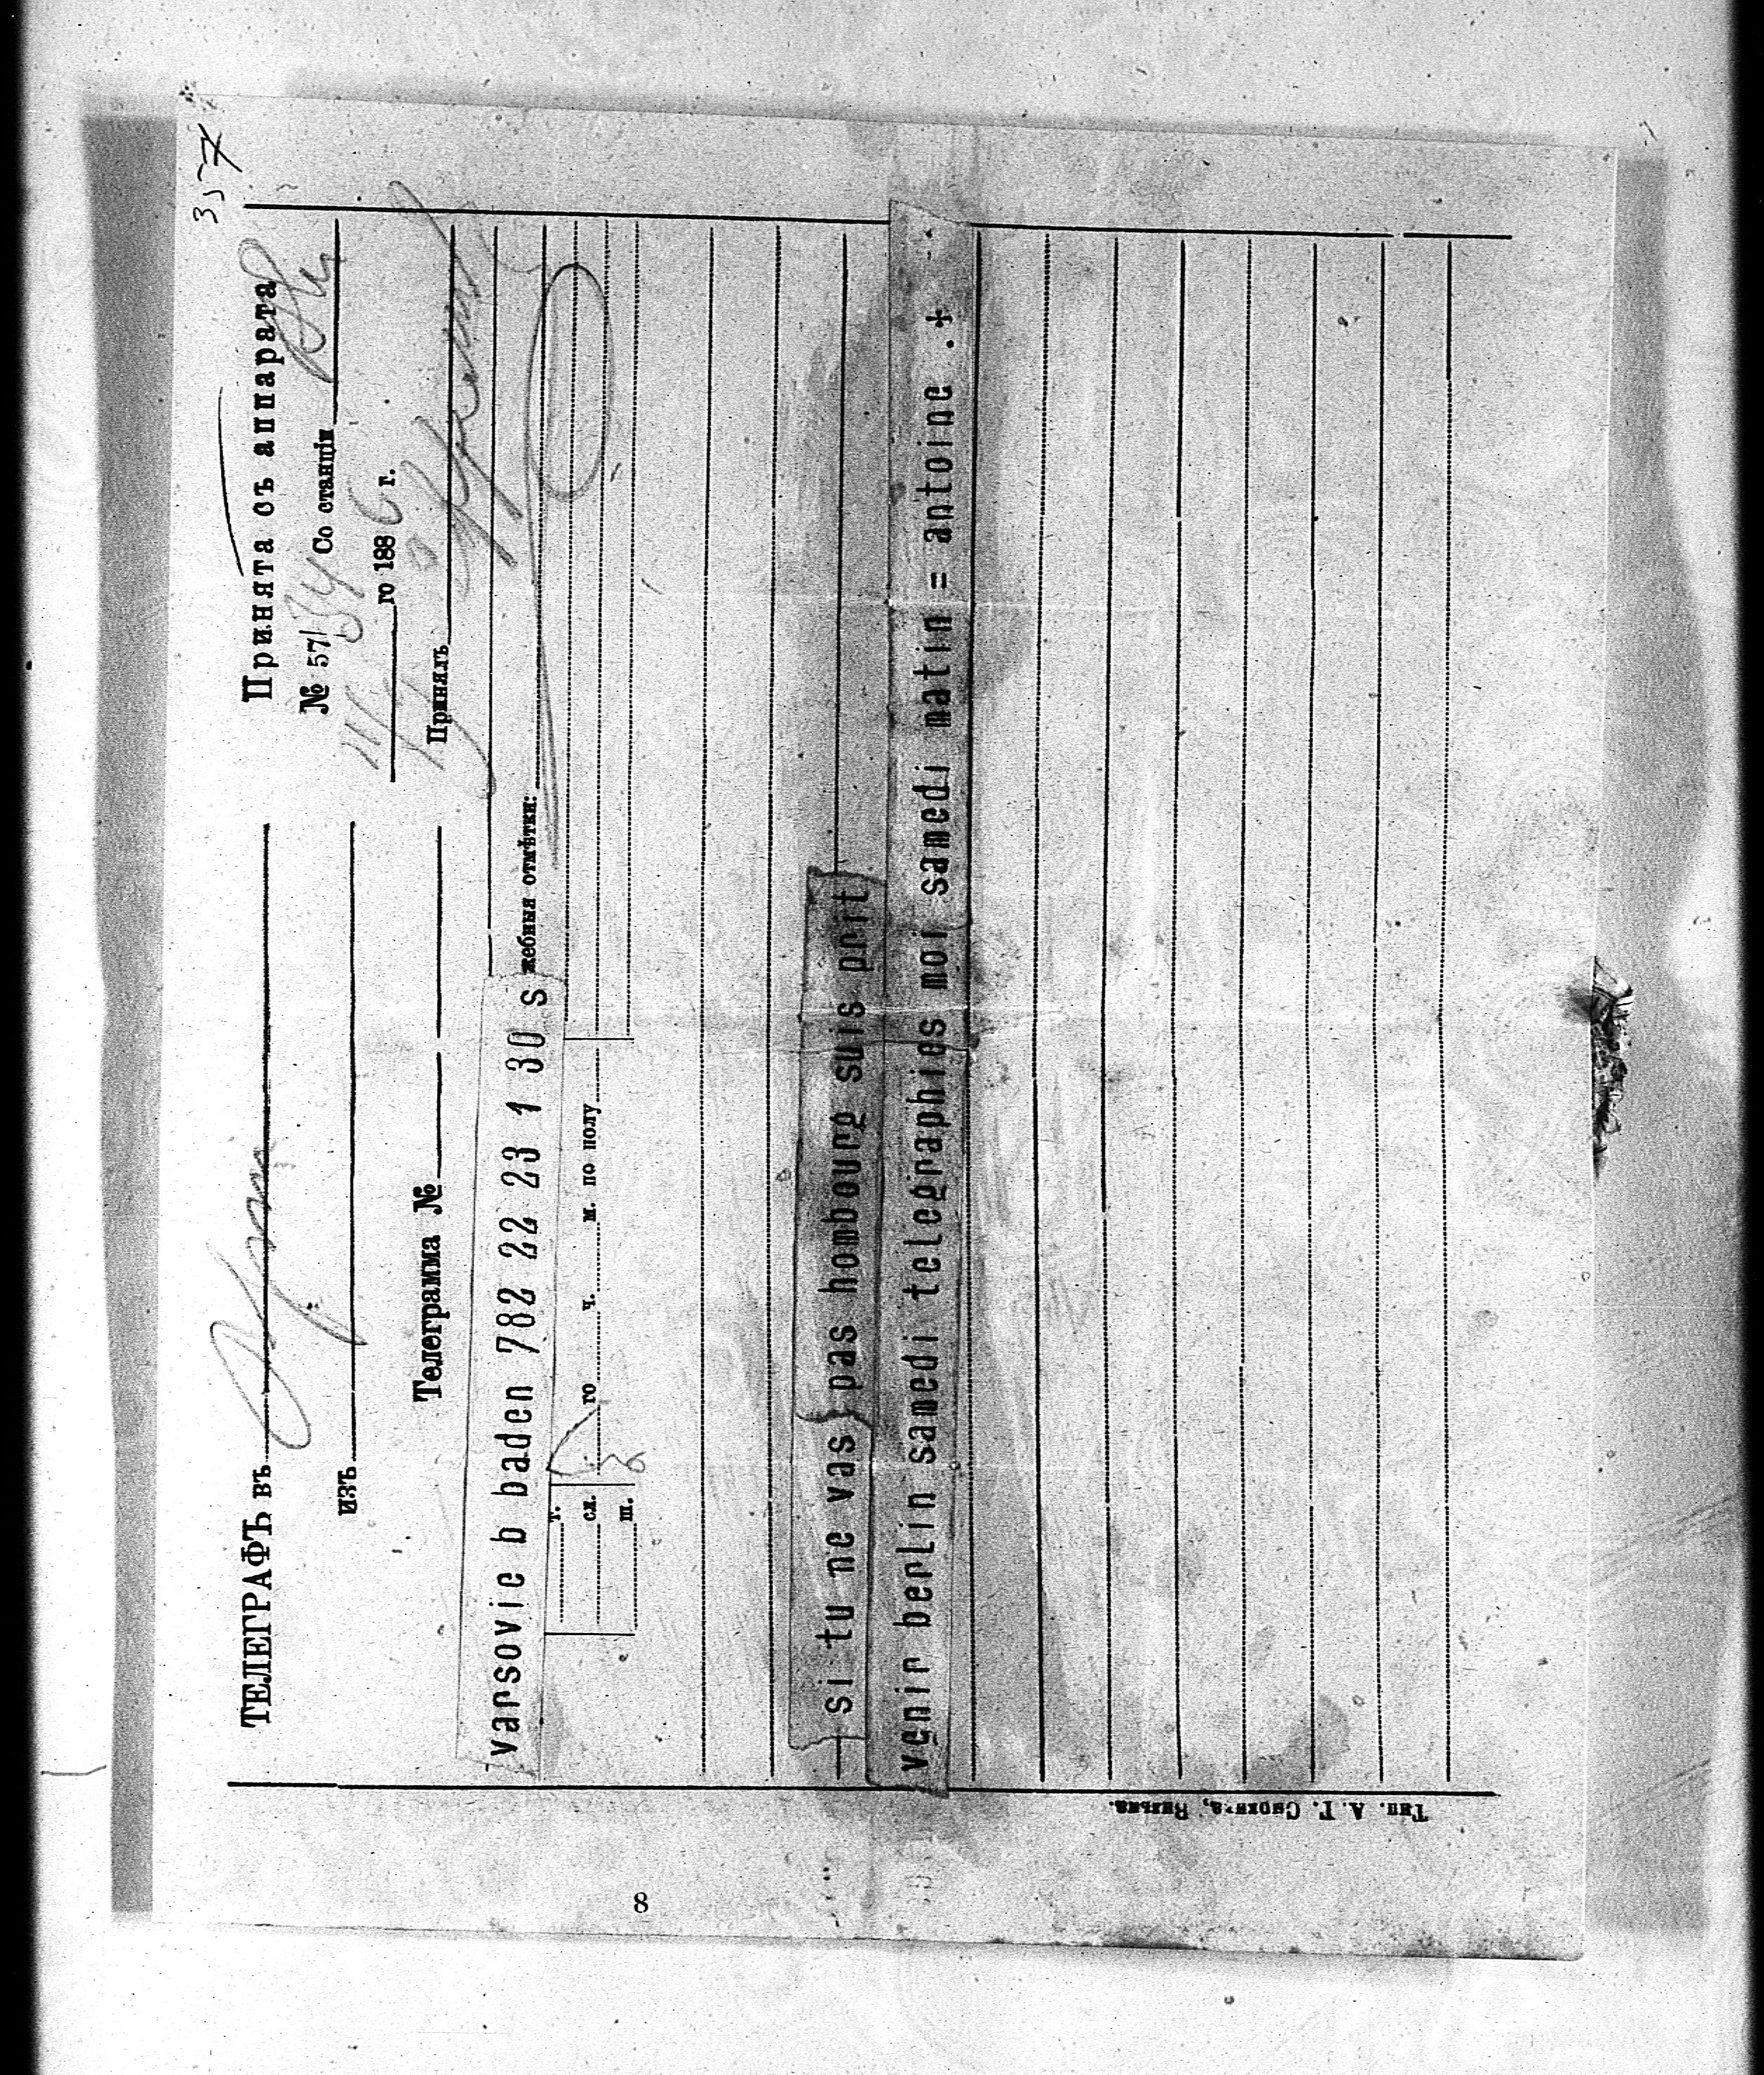 357
ТЕЛЕГРАФЪ въ
Принята съ аппарата
изъ
№ 57/ Со станціи
го 1886 г.
Телеграмма №
Принялъ
varsovie b baden 782 22 23 1 30 s
жебныя отмѣтки:
т.
сл. го ч. м. по полу
ш.
si tu ne vas pas hombourg suis prit
venir berlin samedi telegraphies moi samedi matin = antoine . +
Тип. А. Г. Сыркина, Вильна.
8